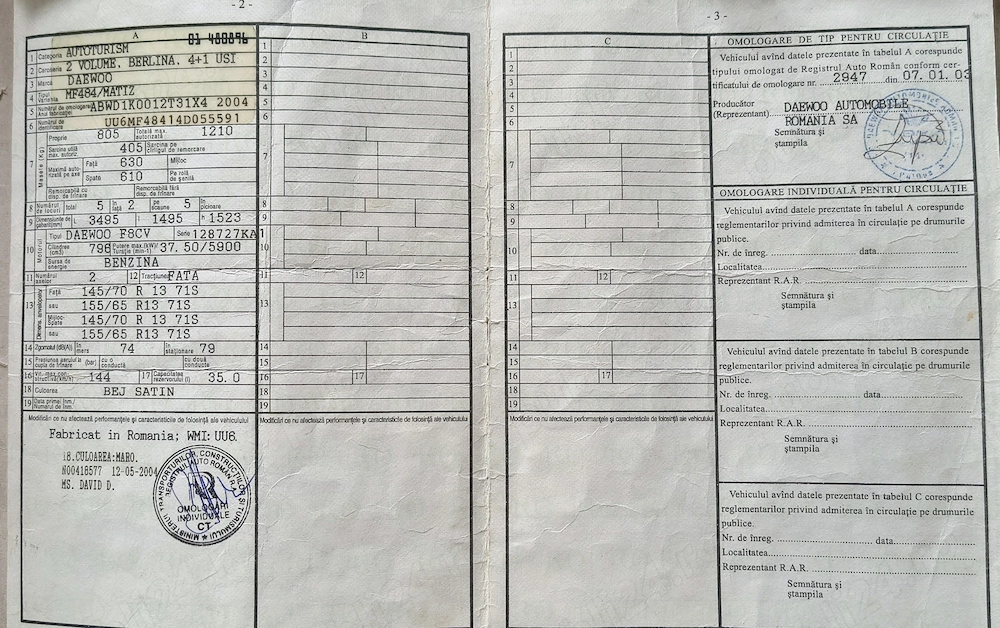 - 2 -
A
01 480896
1 Categoria AUTOTURISM
2 Caroseria 2 VOLUME, BERLINA, 4+1 USI
3 Marca DAEWOO
4 Tipul Varianta MF484/MATIZ
5 Numărul de omologare Anul fabricaţiei ABWD1K0012T31X4 2004
6 Numărul de identificare UU6MF48414D055591
7 Masele (Kg) Proprie 805 Totală max. autorizată 1210
Sarcina utilă max. autoriz. 405 Sarcina pe cîrligul de remorcare
Maximă autorizată pe axe Faţă 630 Mijloc
Spate 610 Pe rolă de şanilă
Remorcabilă cu disp. de frînare Remorcabilă fără disp. de frînare
8 Numărul de locuri total 5 în faţă 2 pe scaune 5 în picioare
9 Dimensiunile de gabarit(mm) L 3495 l 1495 h 1523
10 Motorul Tipul DAEWOO F8CV Serie 128727KA1
Cilindree (cm3) 796 Putere max.(kW)/ Turaţie (min-1) 37.50/5900
Sursa de energie BENZINA
11 Numărul axelor 2 12 Tracţiunea FATA
13 Faţă 145/70 R 13 71S
sau 155/65 R13 71S
Mijloc-Spate 145/70 R 13 71S
sau 155/65 R13 71S
14 Zgomotul (dB(A)) în mers 74 în staţionare 79
15 Presiunea aerului la cupla de frînare (bar) cu o conductă cu două conducte
16 Vit. max. constructivă(km/h) 144 17 Capacitatea rezervorului (l) 35.0
18 Culoarea BEJ SATIN
19 Data primei înm./ Numărul de înm.
Modificări ce nu afectează performanţele şi caracteristicile de folosinţă ale vehiculului
Fabricat in Romania; WMI: UU6.
18.CULOAREA:MARO.
N00418577 12-05-2004
MS. DAVID D.
MINISTERUL TRANSPORTURILOR, CONSTRUCŢIILOR ŞI TURISMULUI
REGISTRUL AUTO ROMÂN R.A.
OMOLOGĂRI
INDIVIDUALE
CT
B
1
2
3
4
5
6
7
8
9
10
11
12
13
14
15
16
17
18
19
Modificări ce nu afectează performanţele şi caracteristicile de folosinţă ale vehiculului
- 3 -
C
1
2
3
4
5
6
7
8
9
10
11
12
13
14
15
16
17
18
19
Modificări ce nu afectează performanţele şi caracteristicile de folosinţă ale vehiculului
OMOLOGARE DE TIP PENTRU CIRCULAŢIE
Vehiculul avînd datele prezentate în tabelul A corespunde
tipului omologat de Registrul Auto Român conform cer-
tificatului de omologare nr. 2947 din 07. 01. 03
Producător DAEWOO AUTOMOBILE
(Reprezentant) ROMANIA SA
Semnătura şi
ştampila
OMOLOGARE INDIVIDUALĂ PENTRU CIRCULAŢIE
Vehiculul avînd datele prezentate în tabelul A corespunde
reglementarilor privind admiterea în circulaţie pe drumurile
publice.
Nr. de înreg. data
Localitatea
Reprezentant R.A.R.
Semnătura şi
ştampila
Vehiculul avînd datele prezentate în tabelul B corespunde
reglementarilor privind admiterea în circulaţie pe drumurile
publice.
Nr. de înreg. data
Localitatea
Reprezentant R.A.R.
Semnătura şi
ştampila
Vehiculul avînd datele prezentate în tabelul C corespunde
reglementarilor privind admiterea în circulaţie pe drumurile
publice.
Nr. de înreg. data
Localitatea
Reprezentant R.A.R.
Semnătura şi
ştampila